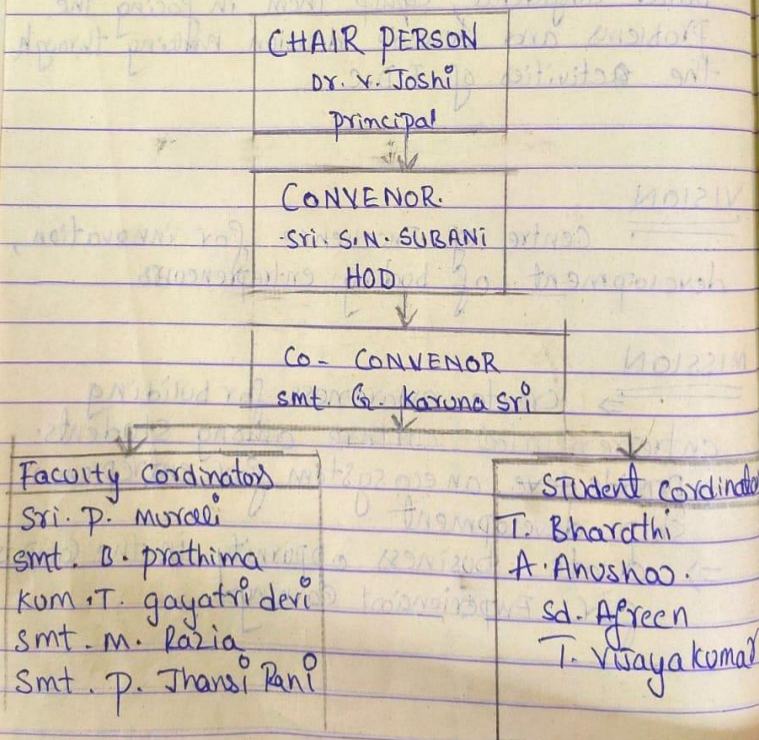 CHAIR PERSON
Dr. V. Joshi
Principal
CONVENOR.
Sri. S.N. SUBANi
HOD
CO- CONVENOR
smt. G. Karuna Sri
Faculty Cordinators
Sri. P. Murali
smt. B. prathima
Kum. T. gayatri devi
Smt. M. Razia
Smt. P. Jhansi Rani
STUdent Cordinato
T. Bharathi
A. Anushoo.
Sd. Afreen
T. Vijaya kumar